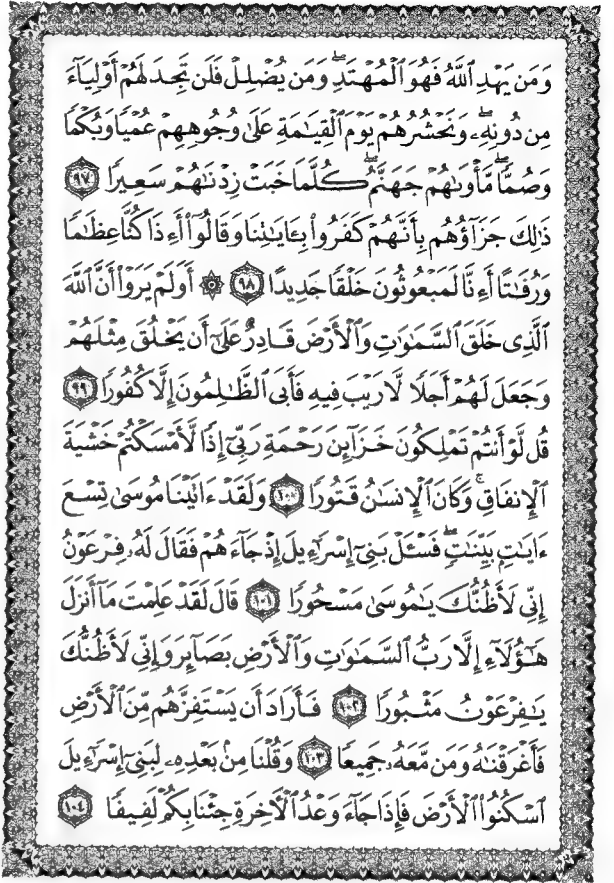 وَمَن يَهْدِ ٱللَّهُ فَهُوَ ٱلْمُهْتَدِۖ وَمَن يُضْلِلْ فَلَن تَجِدَ لَهُمْ أَوْلِيَآءَ
مِن دُونِهِۦۖ وَنَحْشُرُهُمْ يَوْمَ ٱلْقِيَٰمَةِ عَلَىٰ وُجُوهِهِمْ عُمْيًا وَبُكْمًا
وَصُمًّاۖ مَّأْوَىٰهُمْ جَهَنَّمُۖ كُلَّمَا خَبَتْ زِدْنَٰهُمْ سَعِيرًا ٩٧
ذَٰلِكَ جَزَآؤُهُم بِأَنَّهُمْ كَفَرُوا۟ بِـَٔايَٰتِنَا وَقَالُوٓا۟ أَءِذَا كُنَّا عِظَٰمًا
وَرُفَٰتًا أَءِنَّا لَمَبْعُوثُونَ خَلْقًا جَدِيدًا ٩٨ ۞ أَوَلَمْ يَرَوْا۟ أَنَّ ٱللَّهَ
ٱلَّذِى خَلَقَ ٱلسَّمَٰوَٰتِ وَٱلْأَرْضَ قَادِرٌ عَلَىٰٓ أَن يَخْلُقَ مِثْلَهُمْ
وَجَعَلَ لَهُمْ أَجَلًا لَّا رَيْبَ فِيهِ فَأَبَى ٱلظَّٰلِمُونَ إِلَّا كُفُورًا ٩٩
قُل لَّوْ أَنتُمْ تَمْلِكُونَ خَزَآئِنَ رَحْمَةِ رَبِّىٓ إِذًا لَّأَمْسَكْتُمْ خَشْيَةَ
ٱلْإِنفَاقِۚ وَكَانَ ٱلْإِنسَٰنُ قَتُورًا ١٠٠ وَلَقَدْ ءَاتَيْنَا مُوسَىٰ تِسْعَ
ءَايَٰتٍۭ بَيِّنَٰتٍۖ فَسْـَٔلْ بَنِىٓ إِسْرَٰٓءِيلَ إِذْ جَآءَهُمْ فَقَالَ لَهُۥ فِرْعَوْنُ
إِنِّى لَأَظُنُّكَ يَٰمُوسَىٰ مَسْحُورًا ١٠١ قَالَ لَقَدْ عَلِمْتَ مَآ أَنزَلَ
هَٰٓؤُلَآءِ إِلَّا رَبُّ ٱلسَّمَٰوَٰتِ وَٱلْأَرْضِ بَصَآئِرَ وَإِنِّى لَأَظُنُّكَ
يَٰفِرْعَوْنُ مَثْبُورًا ١٠٢ فَأَرَادَ أَن يَسْتَفِزَّهُم مِّنَ ٱلْأَرْضِ
فَأَغْرَقْنَٰهُ وَمَن مَّعَهُۥ جَمِيعًا ١٠٣ وَقُلْنَا مِنۢ بَعْدِهِۦ لِبَنِىٓ إِسْرَٰٓءِيلَ
ٱسْكُنُوا۟ ٱلْأَرْضَ فَإِذَا جَآءَ وَعْدُ ٱلْـَٔاخِرَةِ جِئْنَا بِكُمْ لَفِيفًا ١٠٤